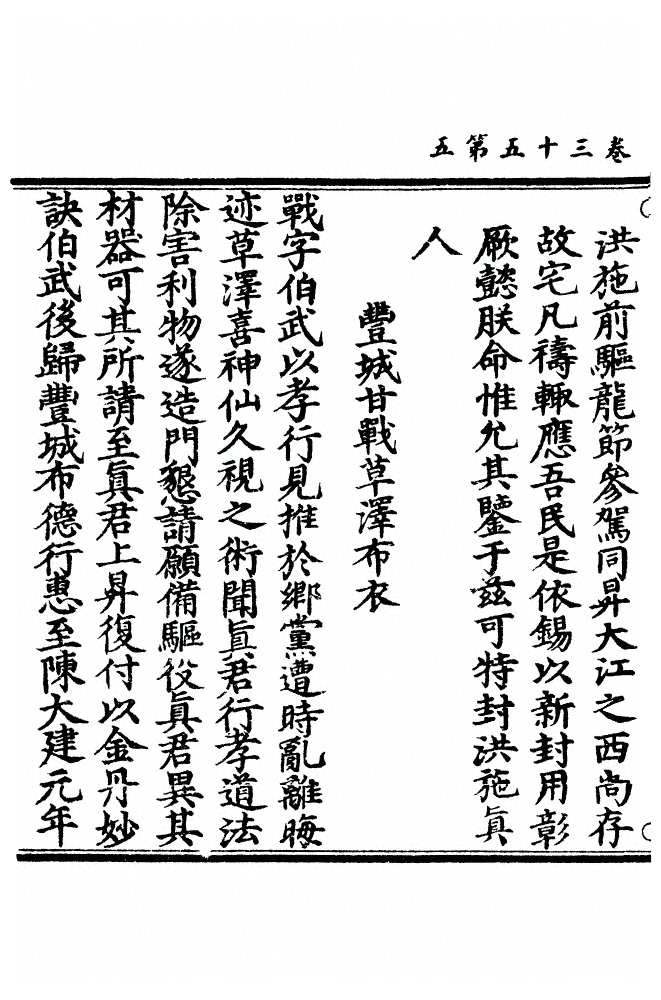 卷三十五第五
洪施前驅龍節參駕同昇大江之西尚存
故宅凡禱輙應吾民是依錫以新封用彰
厥懿朕命惟允其鑒于兹可特封洪施眞
人
豐城甘戰草澤布衣
戰字伯武以孝行見推於鄉黨遭時亂離晦
迹草澤喜神仙久視之術聞眞君行孝道法
除害利物遂造門懇請願備驅役眞君異其
材器可其所請至眞君上昇復付以金丹妙
訣伯武後歸豐城布德行惠至陳大建元年